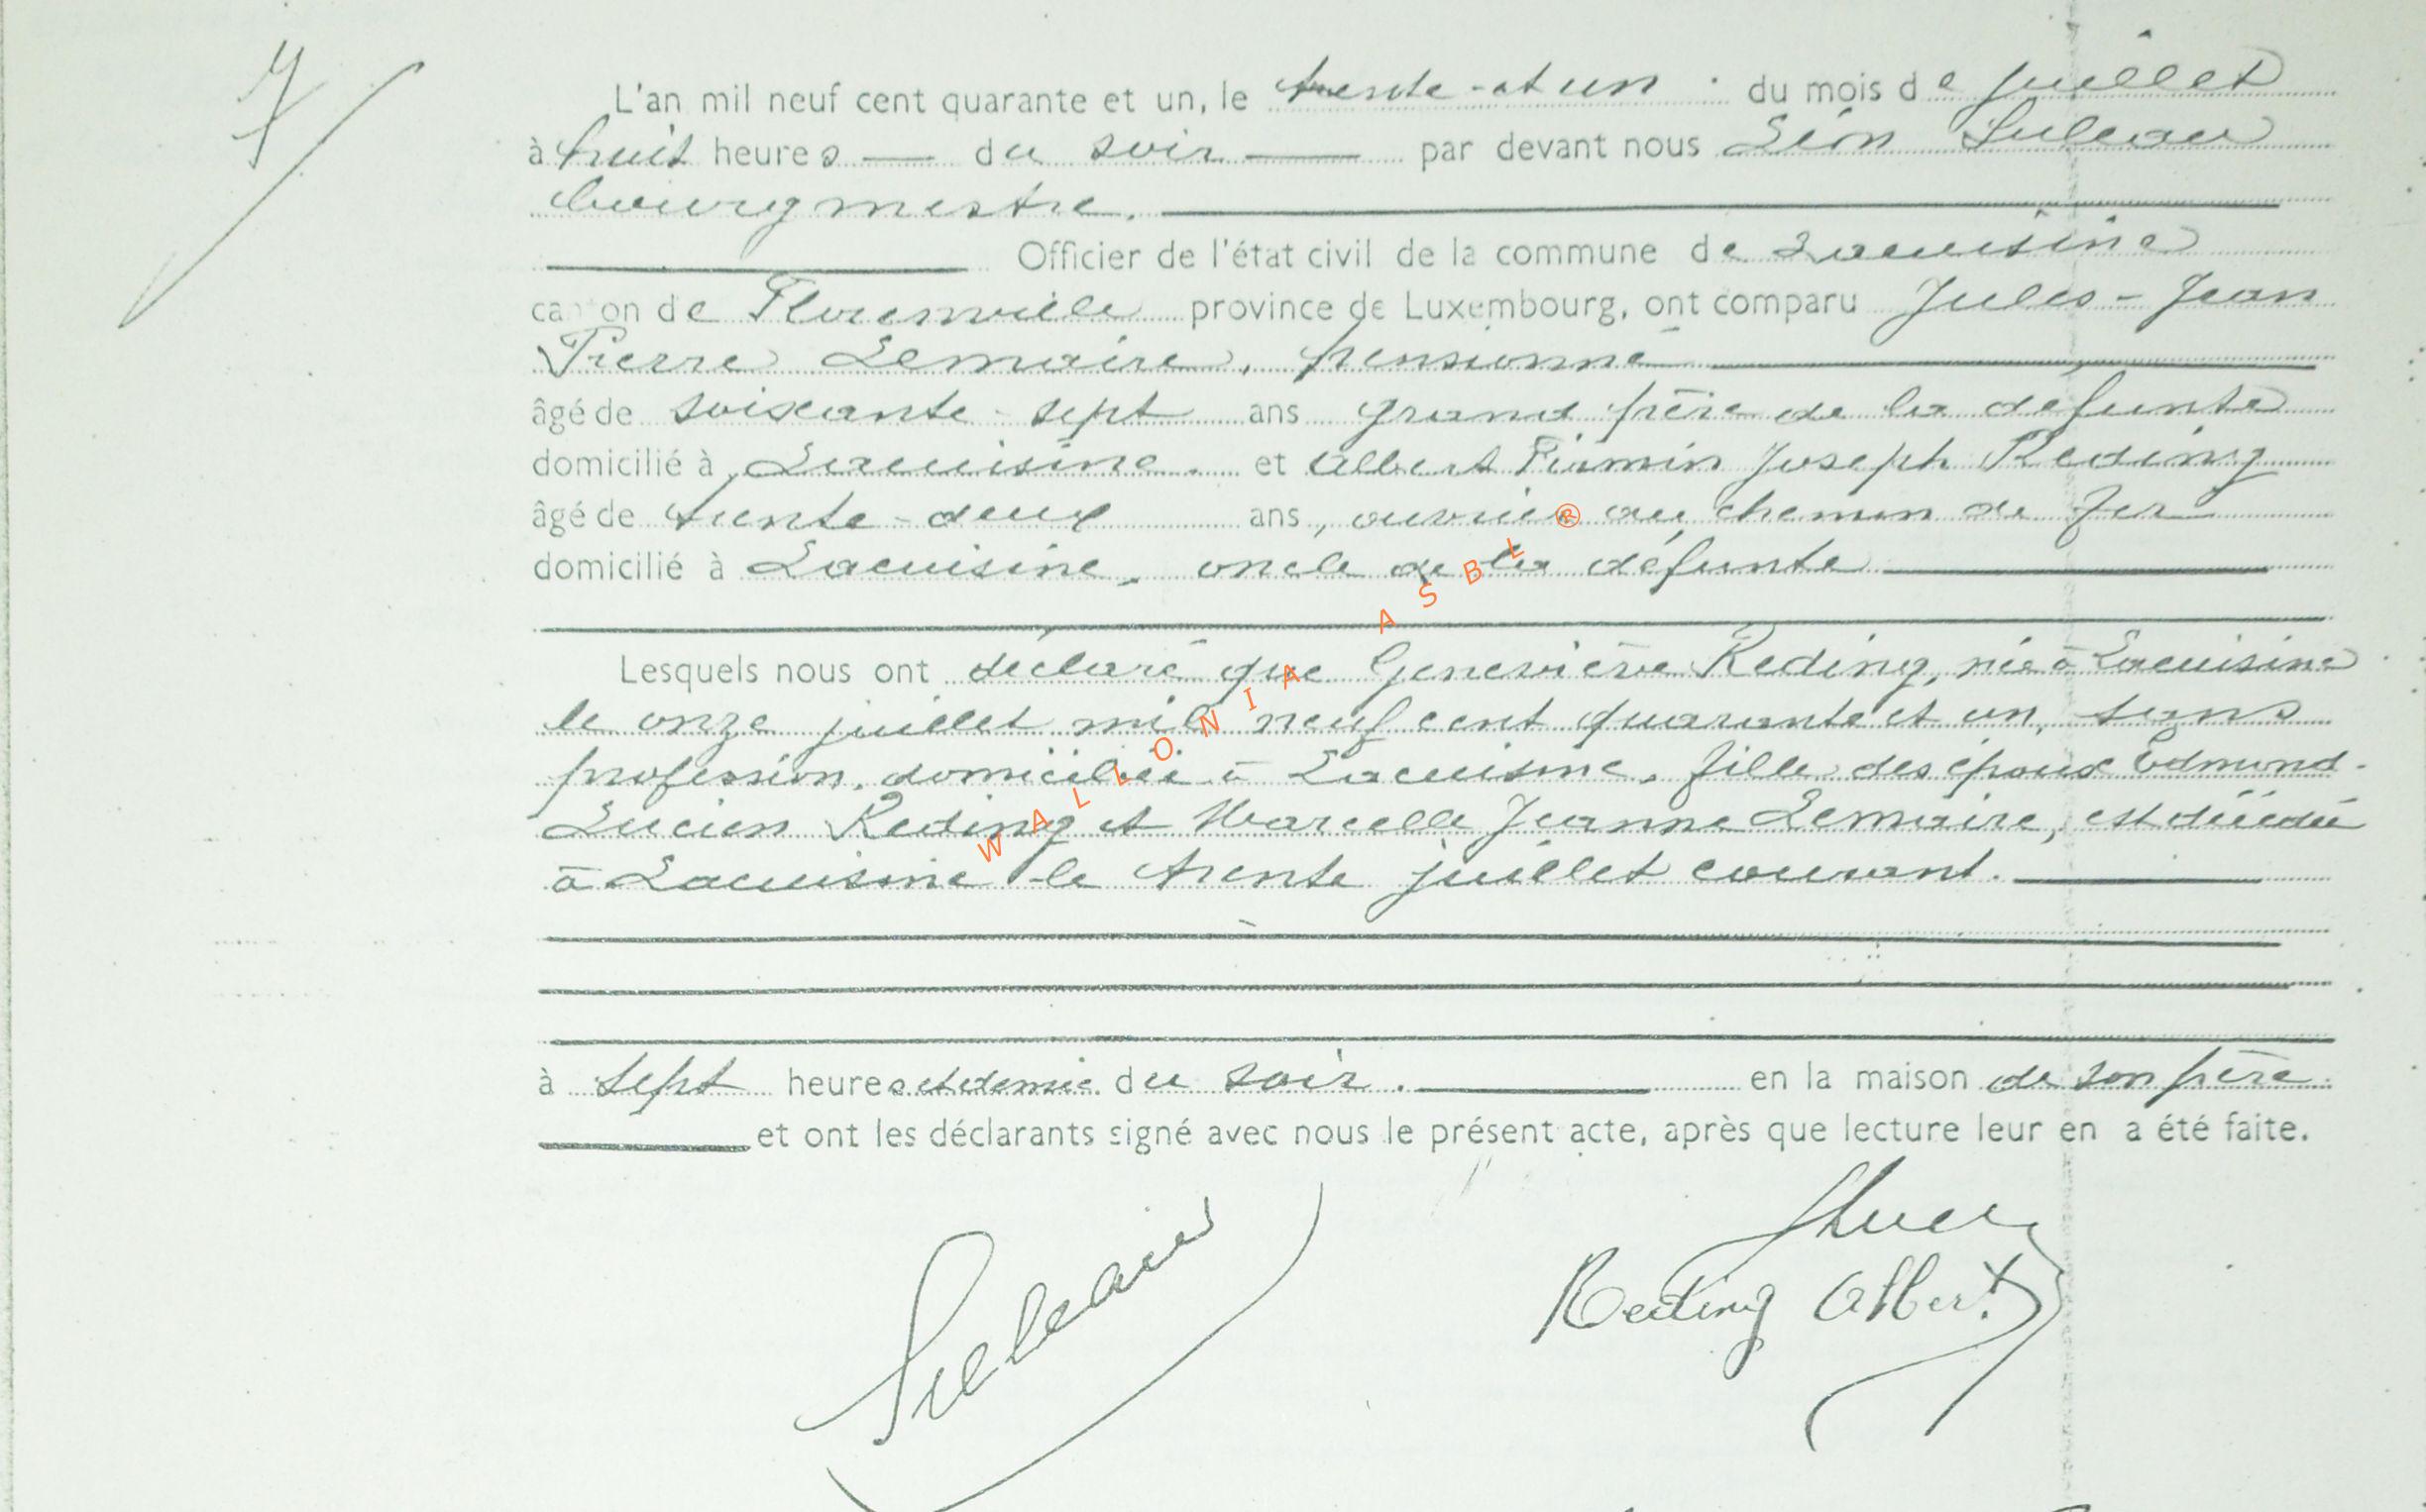 7
L'an mil neuf cent quarante et un, le trente-et un du mois de juillet
à huit heures du soir par devant nous Léon Suleau
bourgmestre.
Officier de l'état civil de la commune de Lacuisine
canton de Florenville province de Luxembourg, ont comparu Jules-Jean
Pierre Lemaire, pensionné
âgé de soixante-sept ans grand père de la défunte
domicilié à Lacuisine. et Albert Firmin Joseph Reding
âgé de trente-deux ans, ouvrier au chemin de fer
domicilié à Lacuisine, oncle de la défunte
Lesquels nous ont déclaré que Geneviève Reding, née à Lacuisine
le onze juillet mil neuf cent quarante et un, sans
profession, domiciliée à Lacuisine, fille des époux Edmond-
Lucien Reding et Marcelle Jeanne Lemaire, est décédée
à Lacuisine le trente juillet courant.
à sept heures et demie du soir. en la maison de son père
et ont les déclarants signé avec nous le présent acte, après que lecture leur en a été faite.
Suleau
Reding Albert
WALLONIA ASBL ®